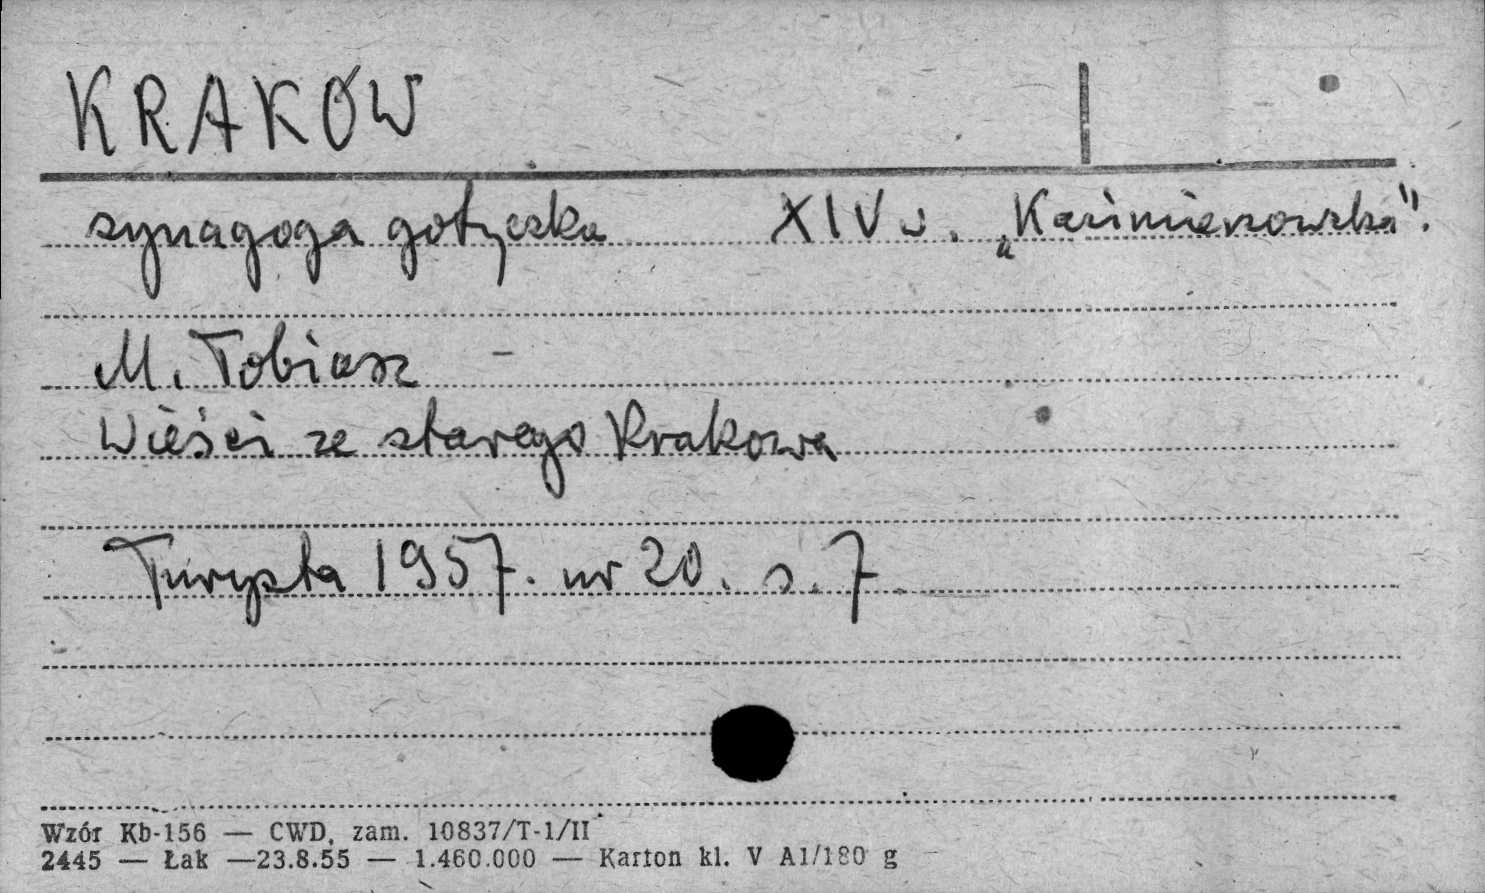 KRAKÓW
synagoga gotycka XIV w. „Kazimierzowska".
M. Tobiasz –
Wieści ze starego Krakowa
Turysta 1957. nr 20. s. 7
Wzór Kb-156 — CWD, zam. 10837/T-1/II
2445 — Łak —23.8.55 — 1.460.000 — Karton kl. V A1/180 g